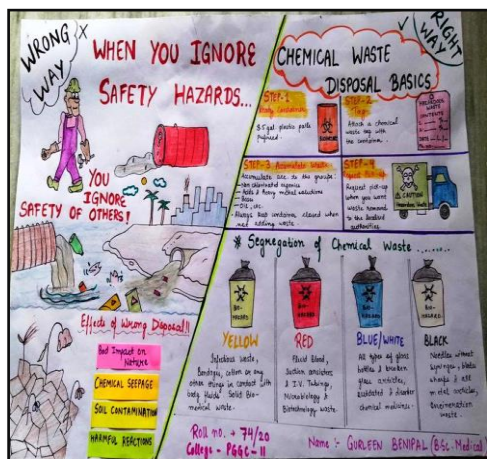 WRONG WAY
WHEN YOU IGNORE
SAFETY HAZARDS...
YOU
IGNORE
SAFETY OF OTHERS!
Effects of Wrong Disposal!!
Bad Impact on
Nature
CHEMICAL SEEPAGE
SOIL CONTAMINATION
HARMFUL REACTIONS
RIGHT WAY
CHEMICAL WASTE
DISPOSAL BASICS
STEP-1
STEP-2
Tag
Attach a chemical
waste tag with
the container.
HAZARDOUS
WASTE
CONTENTS
STEP-3 Accumulate Waste
Accumulate acc to the groups:
- Non chlorinated organics
- Acids & Heavy metal solutions
- Bases
- Oil, etc.
- Always keep container closed when
not adding waste.
STEP-4
Request Pick-up
Request pick-up
when you want
waste removed
to the
authorities.
CAUTION
Hazardous Waste
* Segregation of Chemical Waste
BIO-
HAZARD
BIO-
HAZARD
BIO-
HAZARD
BIO-
HAZARD
YELLOW
Infectious waste,
Bandages, cotton or any
other things in contact with
body fluids. Solid Bio-
medical waste.
RED
Fluid Blood,
Suction canisters
& I.V. Tubings,
Microbiology &
Biotechnology waste
BLUE/WHITE
All types of glass
bottles & broken
glass articles,
outdated & discarded
chemical medicines.
BLACK
Needles without
syringes, blades
sharps & all
metal articles,
Incineration
waste.
Roll no. → 74/20
College - PGGC-11
Name :- GURLEEN BENIPAL (BSc-Medical)